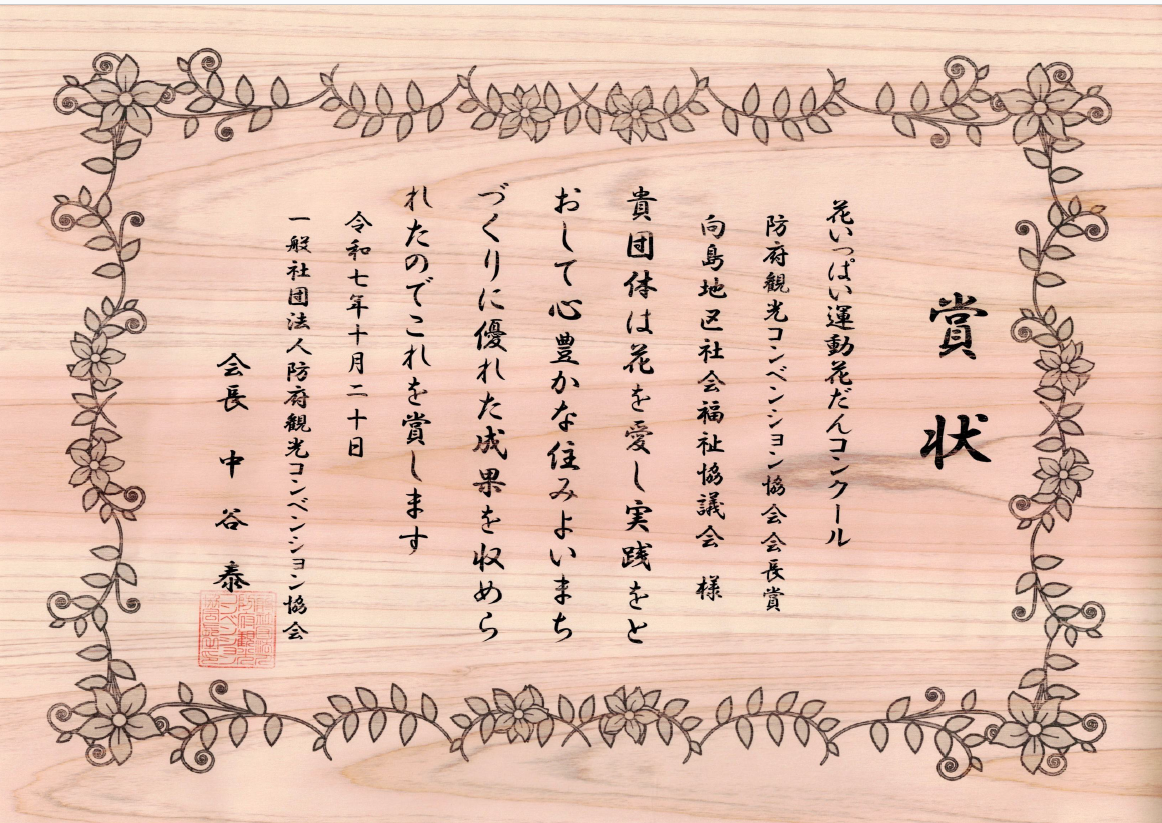 賞状
花いっぱい運動花だんコンクール
防府観光コンベンション協会会長賞
向島地区社会福祉協議会 様
貴団体は花を愛し実践をと
おして心豊かな住みよいまち
づくりに優れた成果を収めら
れたのでこれを賞します
令和七年十月二十日
一般社団法人防府観光コンベンション協会
会長 中谷 泰